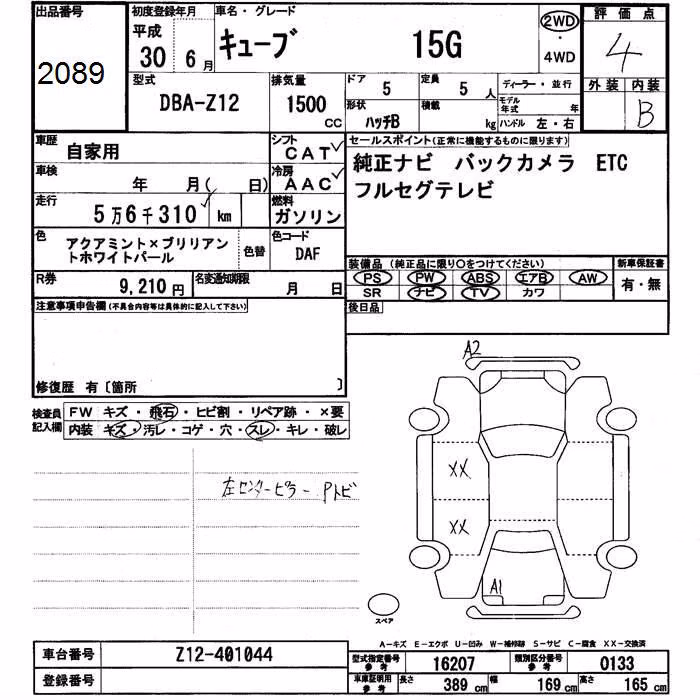 出品番号
2089
初度登録年月
平成
30 6月
車名・グレード
キューブ 15G
2WD
・
4WD
評価点
4
型式
DBA-Z12
排気量
1500
CC
ドア
5
定員
5 人
形状
ハッチB
積載
kg
ディーラー・並行
モデル年式 年
ハンドル 左・右
外装 内装
B
車歴
自家用
シフト
CAT
車検
年 月( 日)
冷房
AAC
走行
5万6千310 km
燃料
ガソリン
色
アクアミント×ブリリアン
トホワイトパール
色替
色コード
DAF
R券
9,210円
名変通知期限
月 日
セールスポイント(正常に機能するものに限ります)
純正ナビ バックカメラ ETC
フルセグテレビ
装備品 (純正品に限り○をつけてください)
新車保証書
PS PW ABS エアB AW
SR ナビ TV カワ
有・無
後日品
注意事項申告欄(不具合内容等は具体的に記入して下さい)
修復歴 有〔箇所 〕
検査員
記入欄
FW キズ・飛石・ヒビ割・リペア跡・×要
内装 キズ・汚レ・コゲ・穴・スレ・キレ・破レ
左センターピラー Pトビ
A2
XX
XX
A1
スペア
A-キズ E-エクボ U-凹み W-補修跡 S-サビ C-腐食 XX-交換済
車台番号
Z12-401044
登録番号
型式指定番号
参考
16207
類別区分番号
参考
0133
車庫証明用
参考
長さ 389cm
幅 169cm
高さ 165cm